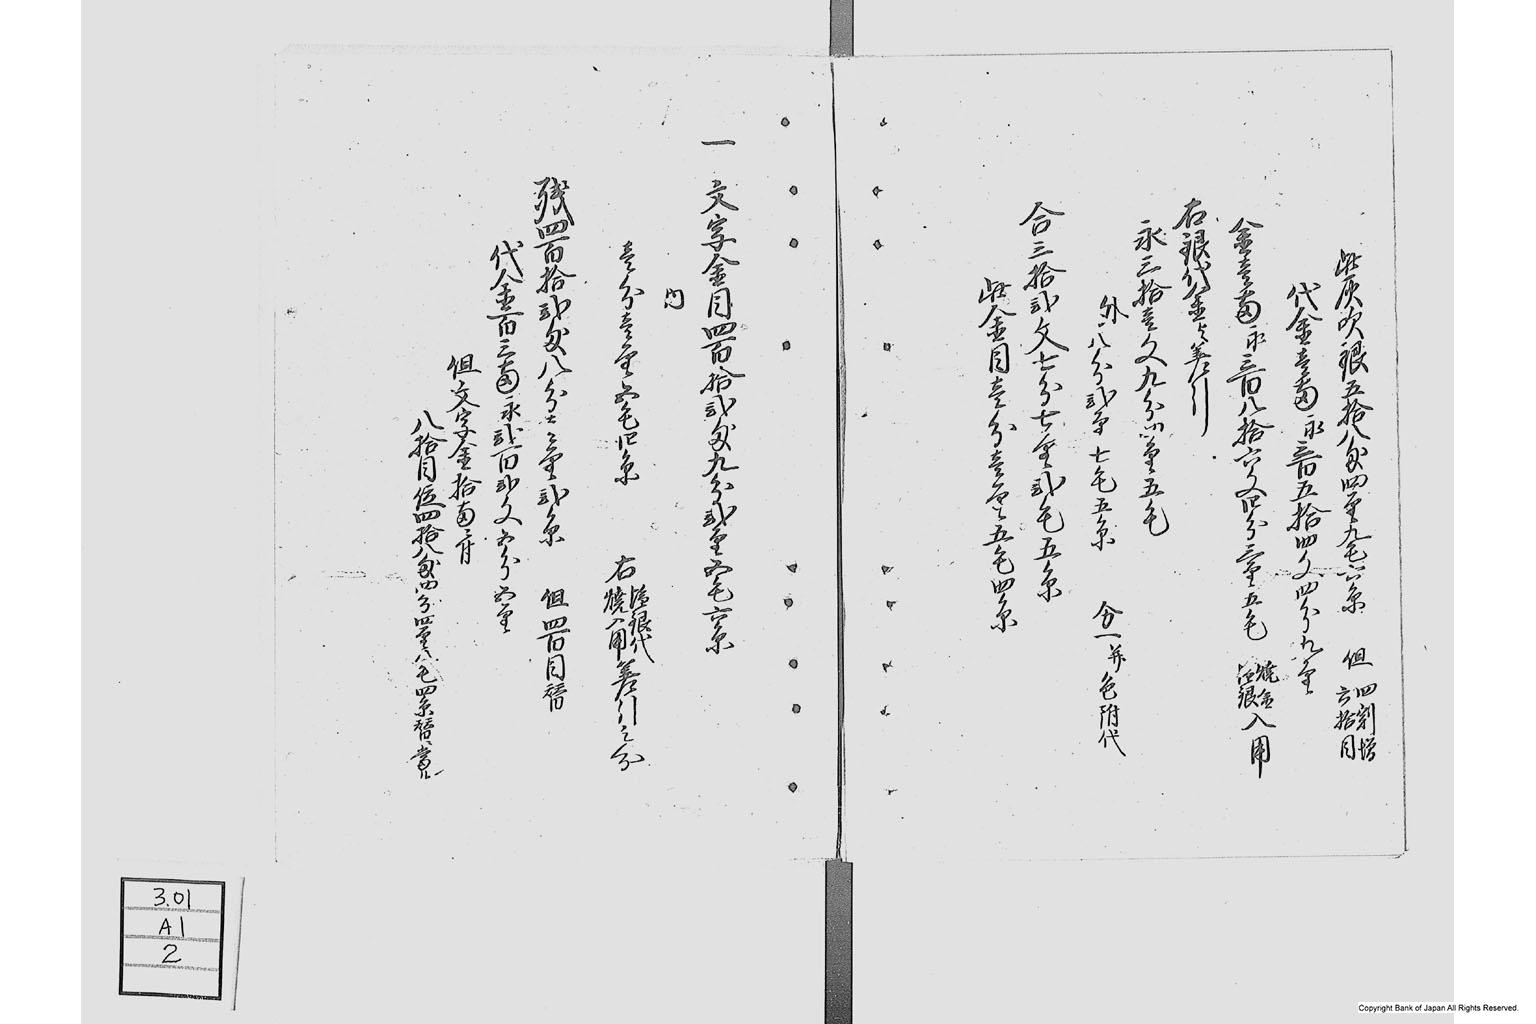 此灰吹銀五拾八匁四厘九毛六糸 但 四割増 六拾目
代金壱両永三百五拾四文四分九厘
金壱両永三百八拾六文四分三厘五毛 焼金 塩銀 入用
右銀代金与差引
永三拾壱文九分四厘五毛
外 八分弐厘七毛五糸 分一并色附代
合三拾弐文七分七厘弐毛五糸
此金目壱分壱厘五毛四糸
一 文字金目四百拾弐匁九分弐厘五毛六糸
内
壱分壱厘五毛四糸 右 塩銀代 焼入用 差引之分
残四百拾弐匁八分壱厘弐糸 但四百目替
代金百三両永弐百弐文五分五厘
但文字金拾両ニ付
八拾目位四拾八匁四分四厘八毛四糸替ニ当ル
3.01
A1
2
Copyright Bank of Japan All Rights Reserved.